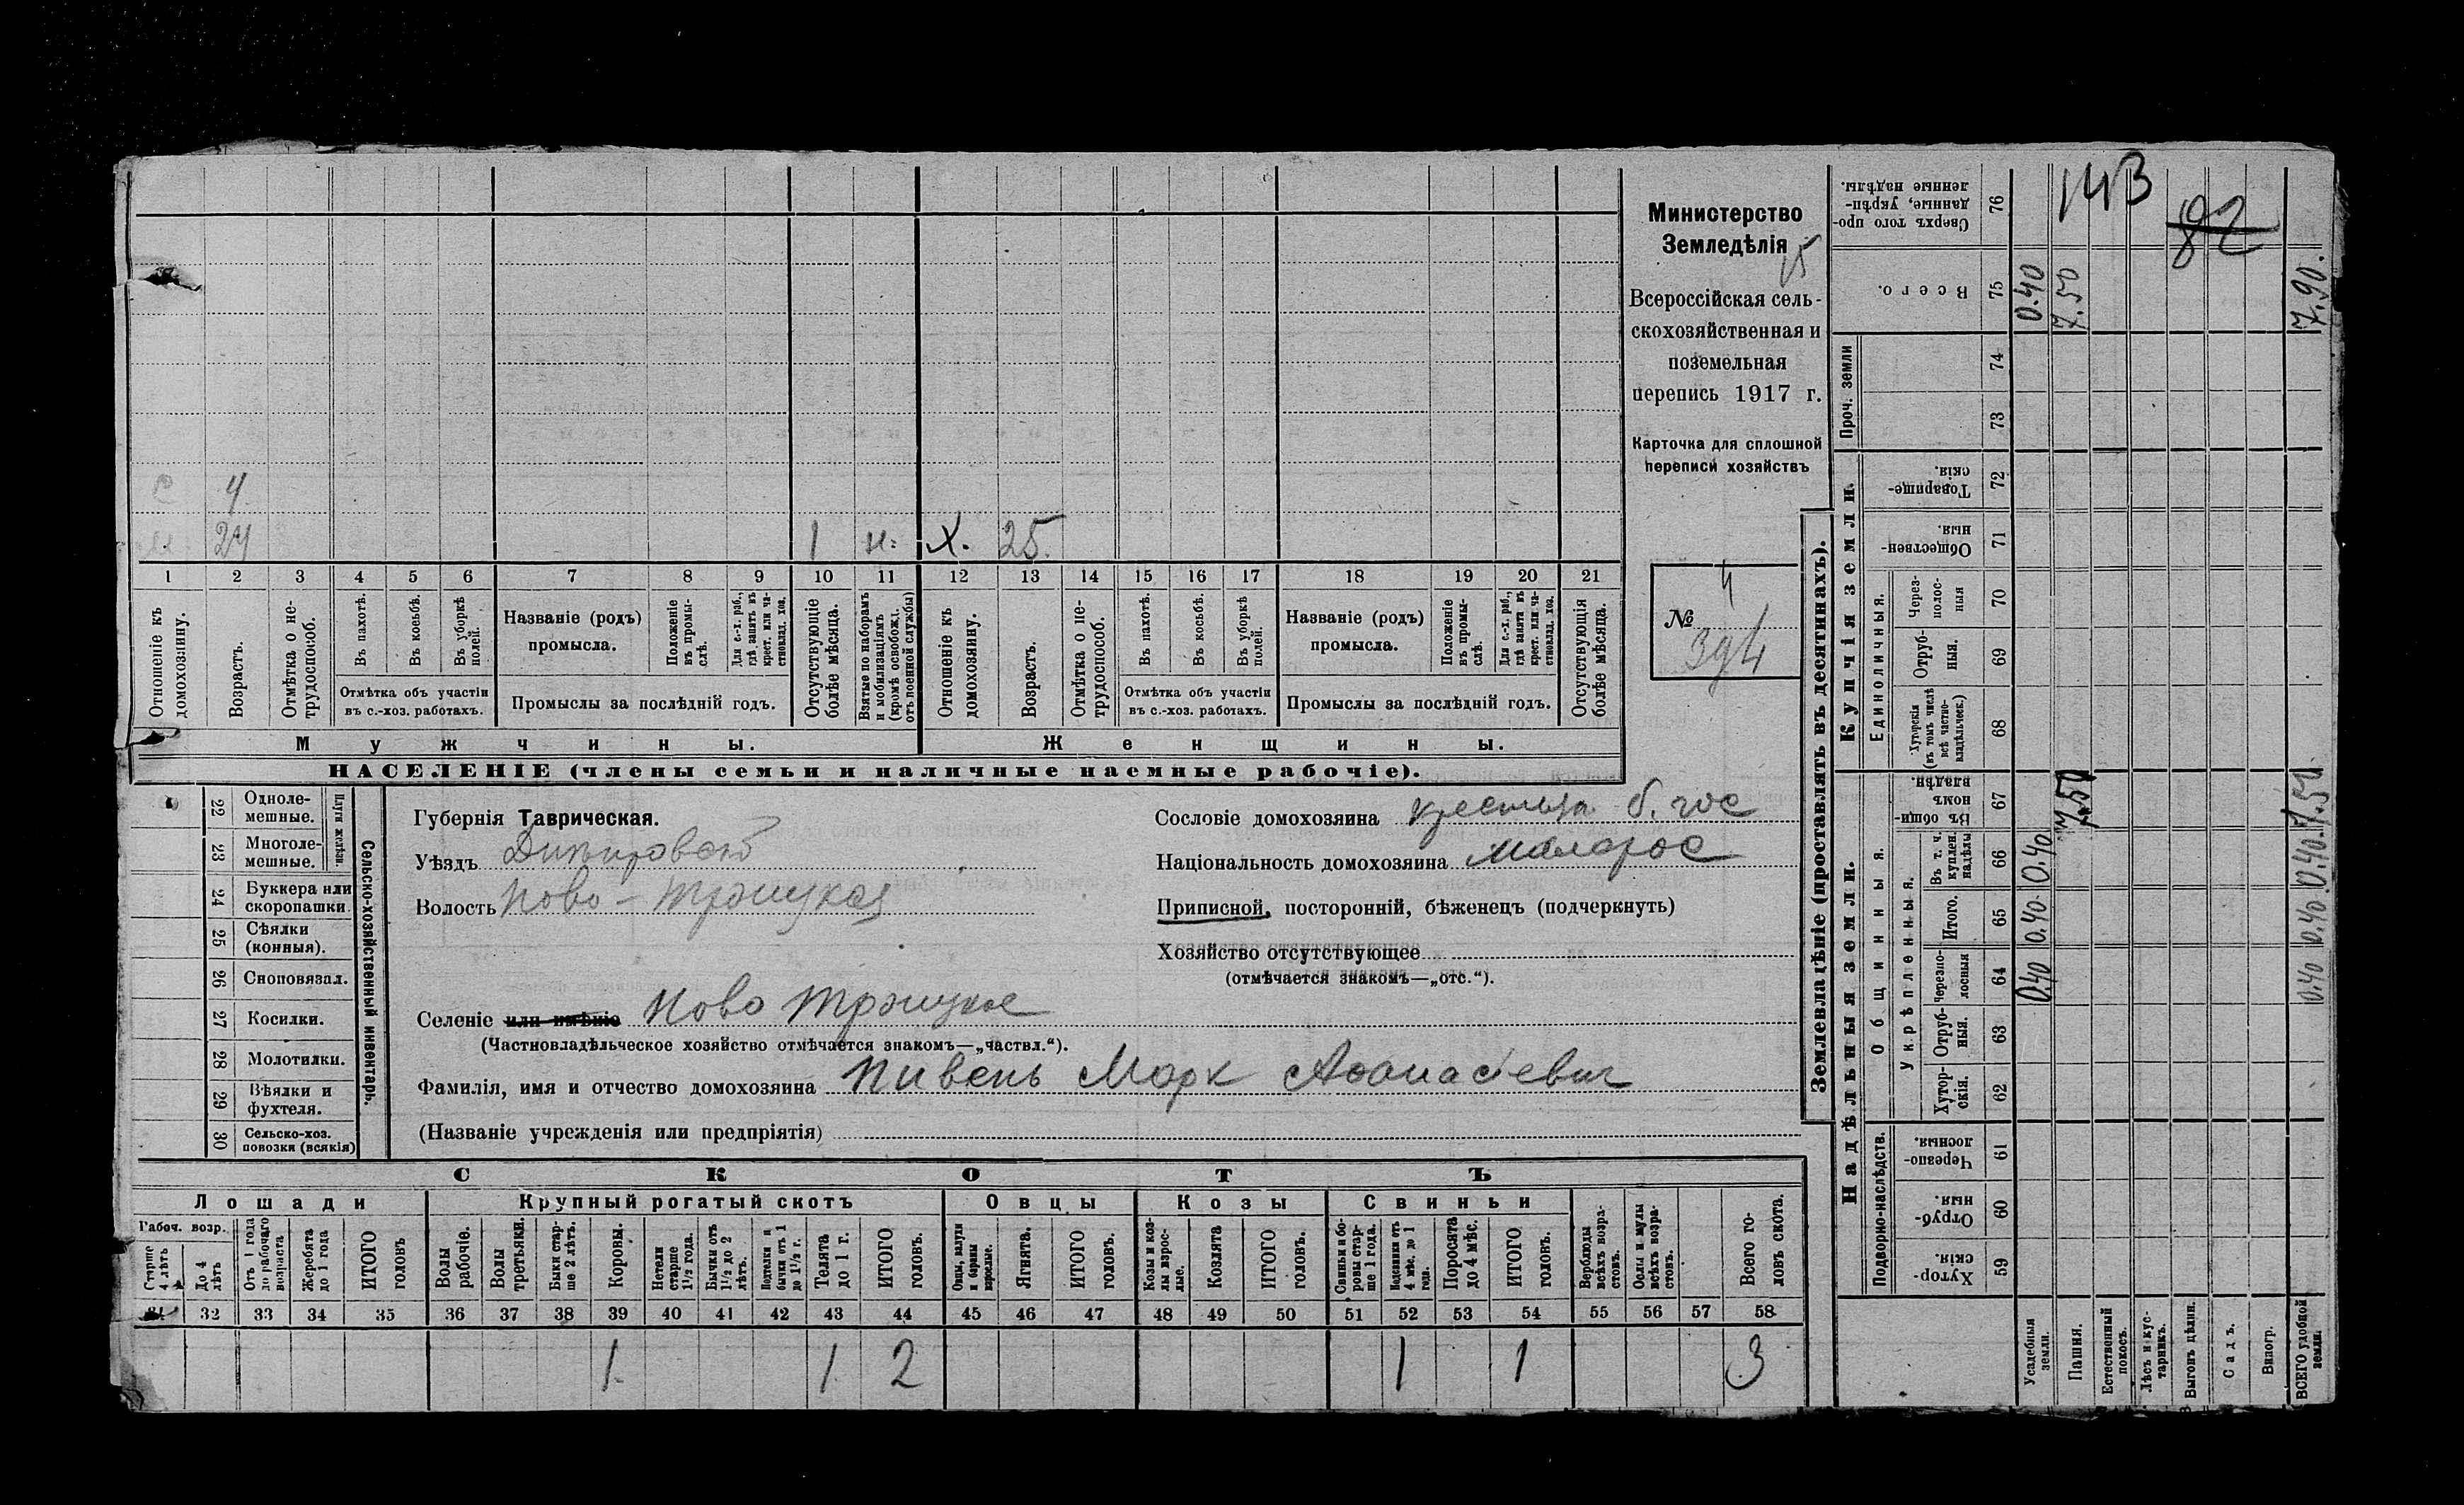 Министерство
Земледѣлія
Всероссійская сель-
скохозяйственная и
поземельная
перепись 1917 г.
Карточка для сплошной
переписи хозяйствъ
№ 4
394
4
24 1 н. Х. 25.
1 2 3 4 5 6 7 8 9 10 11 12 13 14 15 16 17 18 19 20 21
Отношеніе къ домохозяину.
Возрастъ.
Отмѣтка о не-трудоспособ.
Въ пахотѣ.
Въ косьбѣ.
Въ уборкѣ полей.
Отмѣтка объ участіи въ с.-хоз. работахъ.
Названіе (родъ) промысла.
Положеніе въ промы-слѣ.
Для с.-х. раб., гдѣ занятъ въ крест. или ча-стновлад. хоз.
Промыслы за послѣдній годъ.
Отсутствующіе болѣе мѣсяца.
Взятые по наборамъ и мобилизаціямъ (кромѣ освобожд. отъ военной службы)
Отношеніе къ домохозяину.
Возрастъ.
Отмѣтка о не-трудоспособ.
Въ пахотѣ.
Въ косьбѣ.
Въ уборкѣ полей.
Отмѣтка объ участіи въ с.-хоз. работахъ.
Названіе (родъ) промысла.
Положеніе въ промы-слѣ.
Для с.-х. раб., гдѣ занята въ крест. или ча-стновлад. хоз.
Промыслы за послѣдній годъ.
Отсутствующія болѣе мѣсяца.
Мужчины. Женщины.
НАСЕЛЕНІЕ (члены семьи и наличные наемные рабочіе).
Сельско-хозяйственный инвентарь.
22 Одноле-мешные.
23 Многоле-мешные.
24 Буккера или скоропашки
25 Сѣялки (конныя).
26 Сноповязал.
27 Косилки.
28 Молотилки.
29 Вѣялки и фухтеля.
30 Сельско-хоз. повозки (всякія)
Губернія Таврическая.
Уѣздъ Днѣпровскій
Волость Ново-Троицкая
Селеніе или имѣніе Ново Троицкое
(Частновладѣльческое хозяйство отмѣчается знакомъ—„частвл.“).
Фамилія, имя и отчество домохозяина Пивень Марк Афанасіевич
(Названіе учрежденія или предпріятія)
Сословіе домохозяина б. гос
Національность домохозяина малорос
Приписной, посторонній, бѣженецъ (подчеркнуть)
Хозяйство отсутствующее
(отмѣчается знакомъ—„отс.“).
СКОТЪ
Лошади Крупный рогатый скотъ Овцы Козы Свиньи
Рабоч. возр.
Старше 4 лѣтъ
До 4 лѣтъ
Отъ 1 года до рабочаго возраста
Жеребята до 1 года
ИТОГО головъ
Волы рабочіе.
Волы третьяки.
Быки стар-ше 2 лѣтъ.
Коровы.
Нетели старше 1½ года.
Бычки отъ 1½ до 2 лѣтъ.
Подтелки и бычки отъ 1 до 1½ г.
Телята до 1 г.
ИТОГО головъ.
Овцы, валухи и бараны взрослые.
Ягнята.
ИТОГО головъ.
Козы и коз-лы взрос-лые.
Козлята
ИТОГО головъ.
Свиньи и бо-ровы стар-ше 1 года.
Подсвинки отъ 4 мѣс. до 1 года.
Поросята до 4 мѣс.
ИТОГО головъ.
Верблюды всѣхъ возра-стовъ.
Ослы и мулы всѣхъ возра-стовъ.
Всего го-ловъ скота.
31 32 33 34 35 36 37 38 39 40 41 42 43 44 45 46 47 48 49 50 51 52 53 54 55 56 57 58
1 1 2 1 1 3
Землевладѣніе (проставлять въ десятинахъ).
Купчія земли.
Надѣльныя земли.
Сверхъ того про-данные, укрѣп-ленные надѣлы. 76
143
82
Всего. 75 0.40 7.50 7.90.
Проч. земли 74
73
Товарище-скія. 72
Обществен-ныя. 71
Единоличныя.
Через-полос-ныя 70
Отруб-ныя. 69
Хуторскія (въ томъ числѣ всѣ частно-владѣльческ.) 68
Общинныя.
Въ общи-номъ владѣн. 67 7.50 7.50
Укрѣпленныя.
Въ т. ч. куплен. надѣлы 66 0.40 0.40
Итого. 65 0.40 0.40
Черезпо-лосныя 64 0.40 0.40
Отруб-ныя. 63
Хутор-скія. 62
Подворно-наслѣдств.
Черезпо-лосныя. 61
Отруб-ныя. 60
Хутор-скія. 59
Усадебныя земли.
Пашня.
Естественный покосъ.
Лѣсъ и кус-тарникъ.
Выгонъ цѣлин.
Садъ.
Виногр.
ВСЕГО удобной земли.